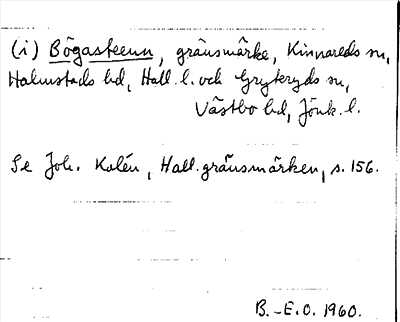 (i) Bögasteenn, gränsmärke, Kinnareds sn,
Halmstads hd, Hall. l. och Gryteryds sn,
Västbo hd, Jönk. l.
Se Joh. Kalén, Hall. gränsmärken, s. 156.
B. -E.O. 1960.